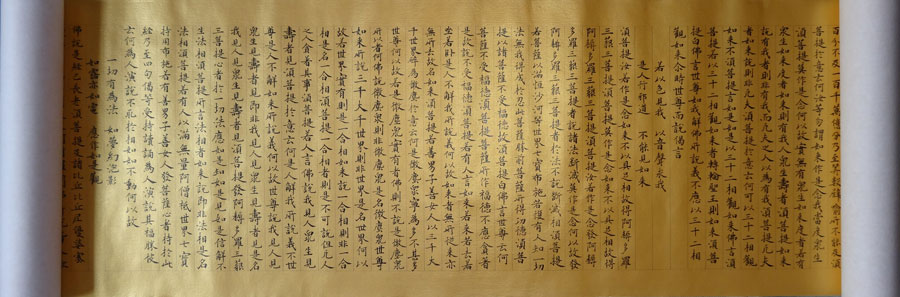 百分不及一百千萬億分乃至算數譬喻所不能及須
菩提於意云何汝等勿謂如來作是念我當度眾生
須菩提莫作是念何以故實無有眾生如來度者若有
眾生如來度者如來則有我人眾生壽者須菩提如來
說有我者則非有我而凡夫之人以為有我須菩提凡夫
者如來說則非凡夫須菩提於意云何可以三十二相觀
如來不須菩提言如是如是以三十二相觀如來佛言須
菩提若以三十二相觀如來者轉輪聖王則是如來須菩
提白佛言世尊如我解佛所說義不應以三十二相
觀如來爾時世尊而說偈言
若以色見我 以音聲求我
是人行邪道 不能見如來
須菩提汝若作是念如來不以具足相故得阿耨多羅
三藐三菩提須菩提莫作是念如來不以具足相故得
阿耨多羅三藐三菩提須菩提汝若作是念發阿耨
多羅三藐三菩提心者說諸法斷滅莫作是念何以故發
阿耨多羅三藐三菩提心者於法不說斷滅相須菩提
若菩薩以滿恒河沙等世界七寶布施若復有人知一切
法無我得成於忍此菩薩勝前菩薩所得功德須菩
提以諸菩薩不受福德故須菩提白佛言世尊云何
菩薩不受福德須菩提菩薩所作福德不應貪著
是故說不受福德須菩提若有人言如來若來若去若
坐若臥是人不解我所說義何以故如來者無所從來亦
無所去故名如來須菩提若善男子善女人以三千大
千世界碎為微塵於意云何是微塵眾寧為多不甚多
世尊何以故若是微塵眾實有者佛則不說是微塵眾
所以者何佛說微塵眾則非微塵眾是名微塵眾世尊
如來所說三千大千世界則非世界是名世界何以
故若世界實有則是一合相如來說一合相則非一合
相是名一合相須菩提一合相者則是不可說但凡夫
之人貪著其事須菩提若人言佛說我見人見眾生見
壽者見須菩提於意云何是人解我所說義不世
尊是人不解如來所說義何以故世尊說我見人見
眾生見壽者見即非我見人見眾生見壽者見是名
我見人見眾生見壽者見須菩提發阿耨多羅三藐
三菩提心者於一切法應如是知如是見如是信解不
生法相須菩提所言法相者如來說即非法相是名
法相須菩提若有人以滿無量阿僧祇世界七寶
持用布施若有善男子善女人發菩薩心者持於此
經乃至四句偈等受持讀誦為人演說其福勝彼
云何為人演說不取於相如如不動何以故
一切有為法 如夢幻泡影
如露亦如電 應作如是觀
佛說是經已長老須菩提及諸比丘比丘尼優婆塞